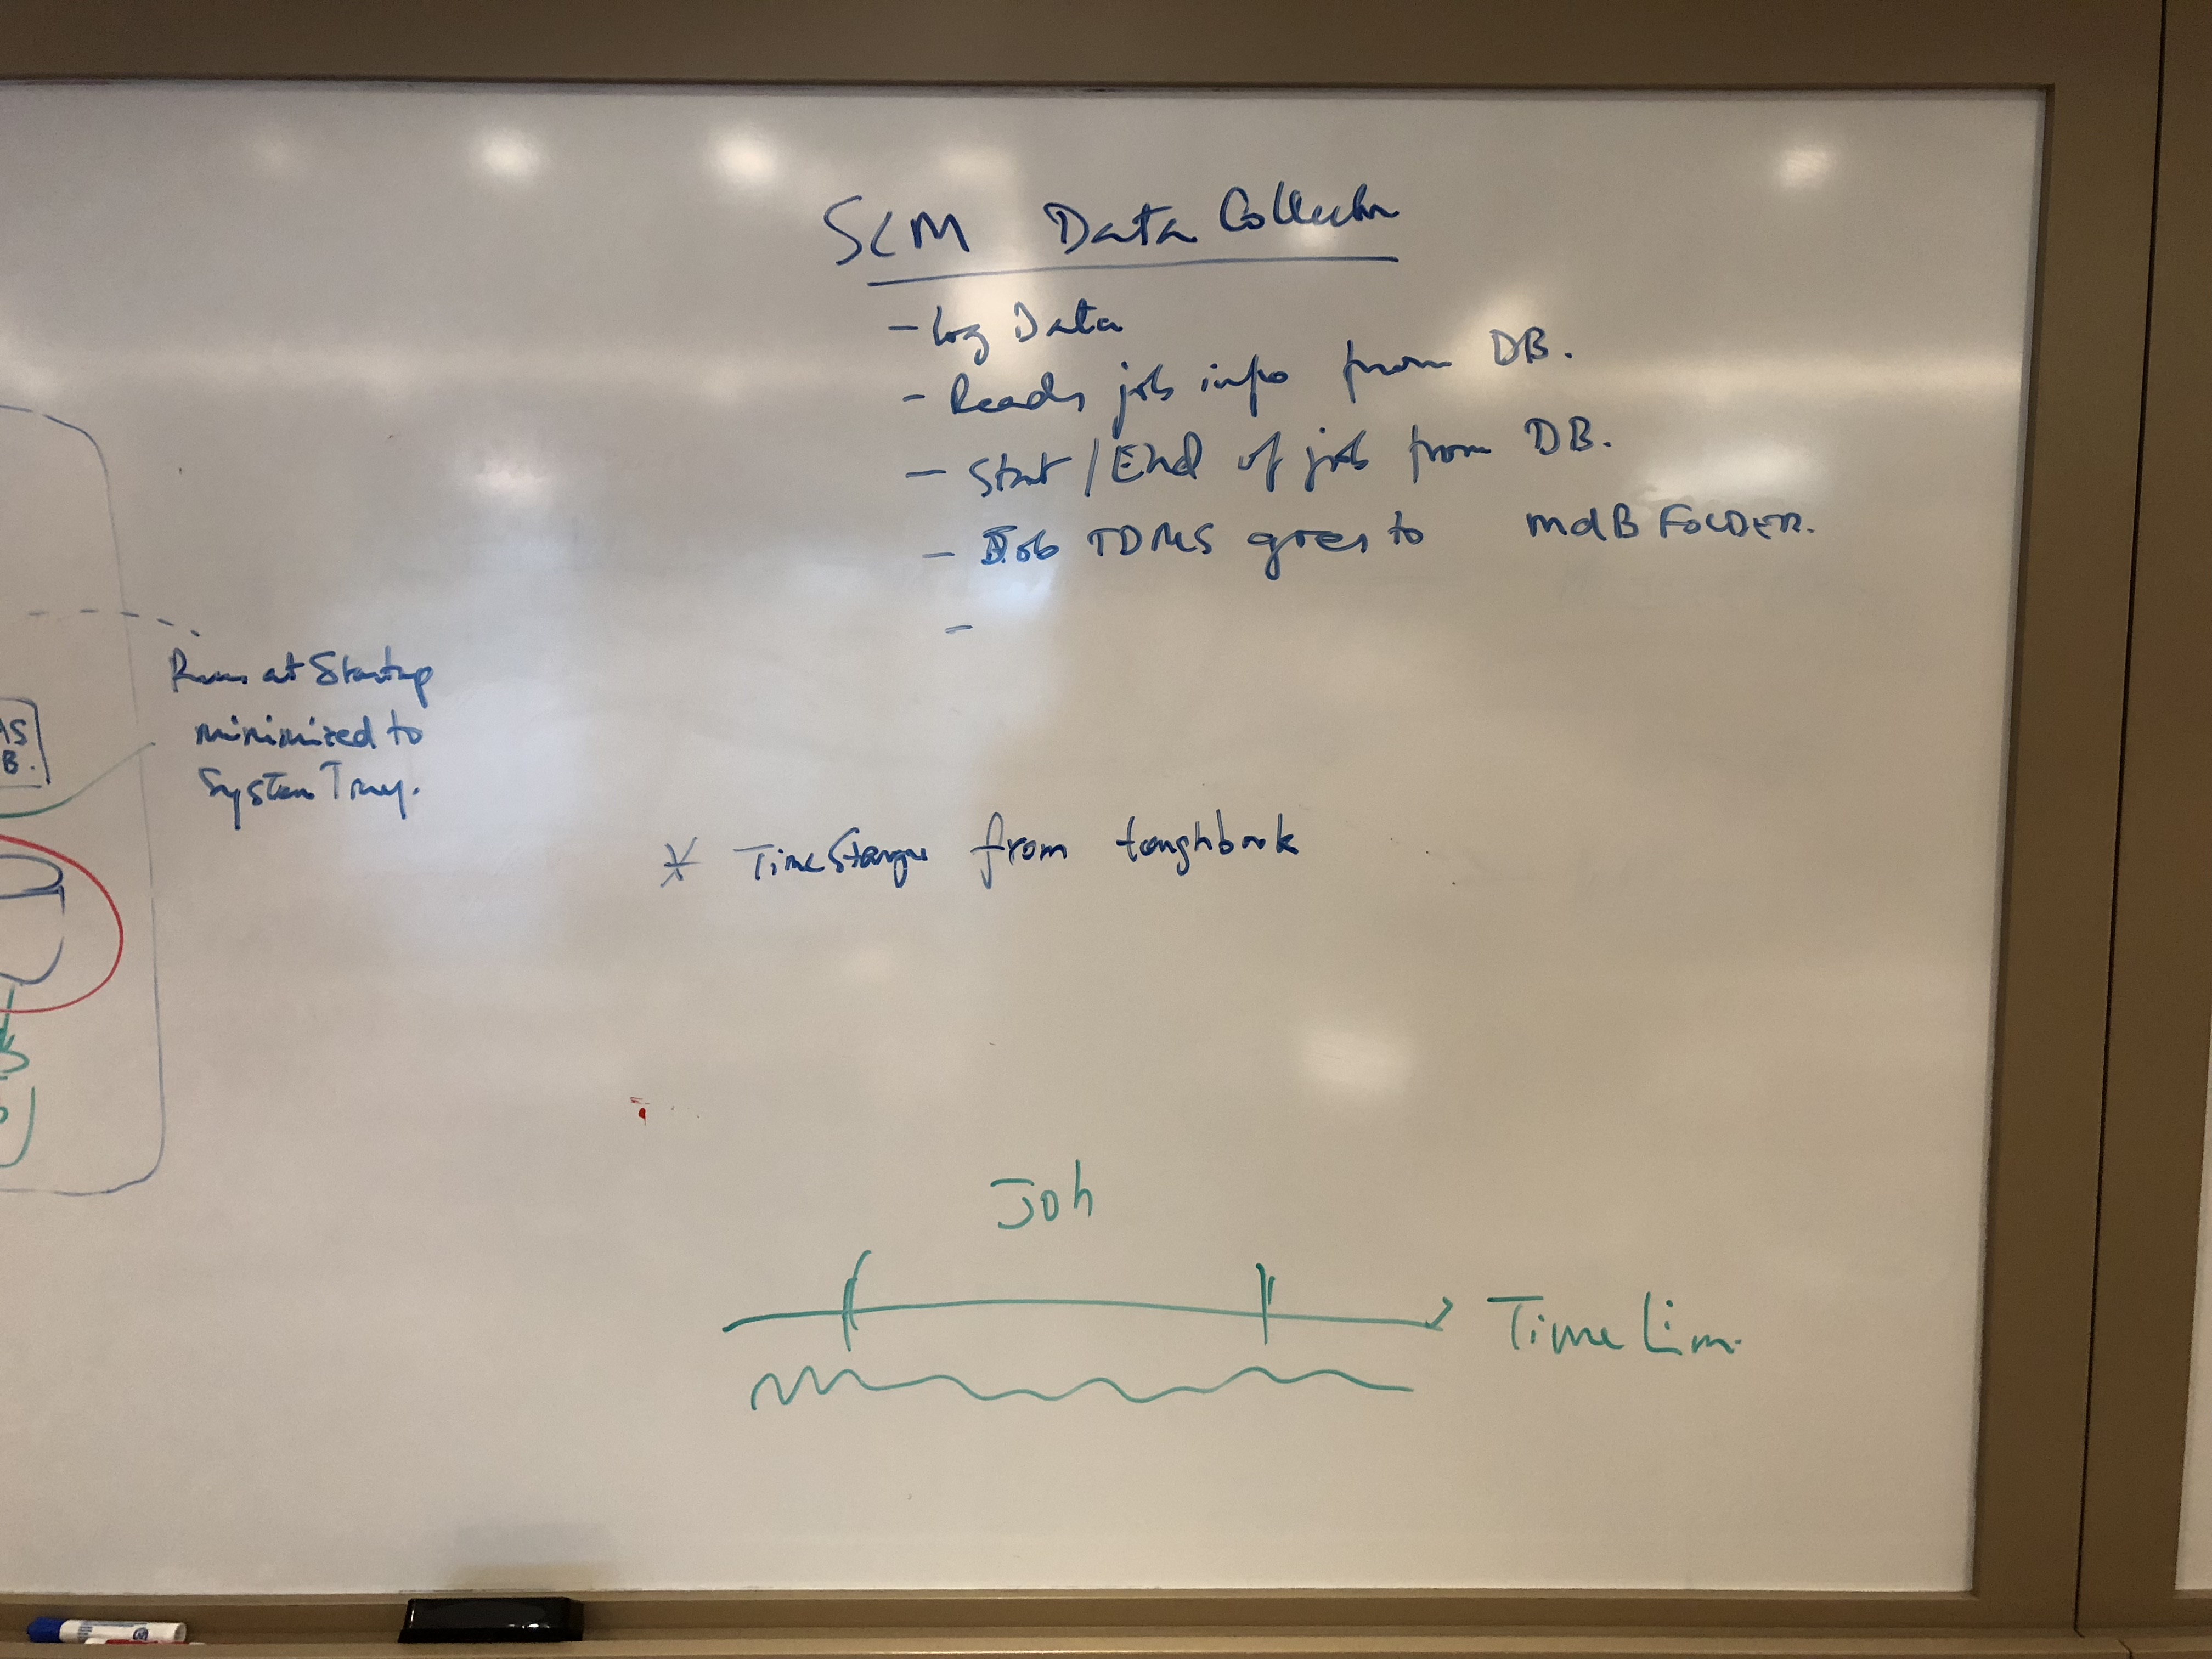 SCM Data Collector
- Log Data
- Reads job info from DB.
- Start/End of job from DB.
- Job TDMS goes to mdB FOLDER.
-
Runs at Startup
minimized to
System Tray.
AS
B.
* TimeStamp from toughbook
Job
Time Line